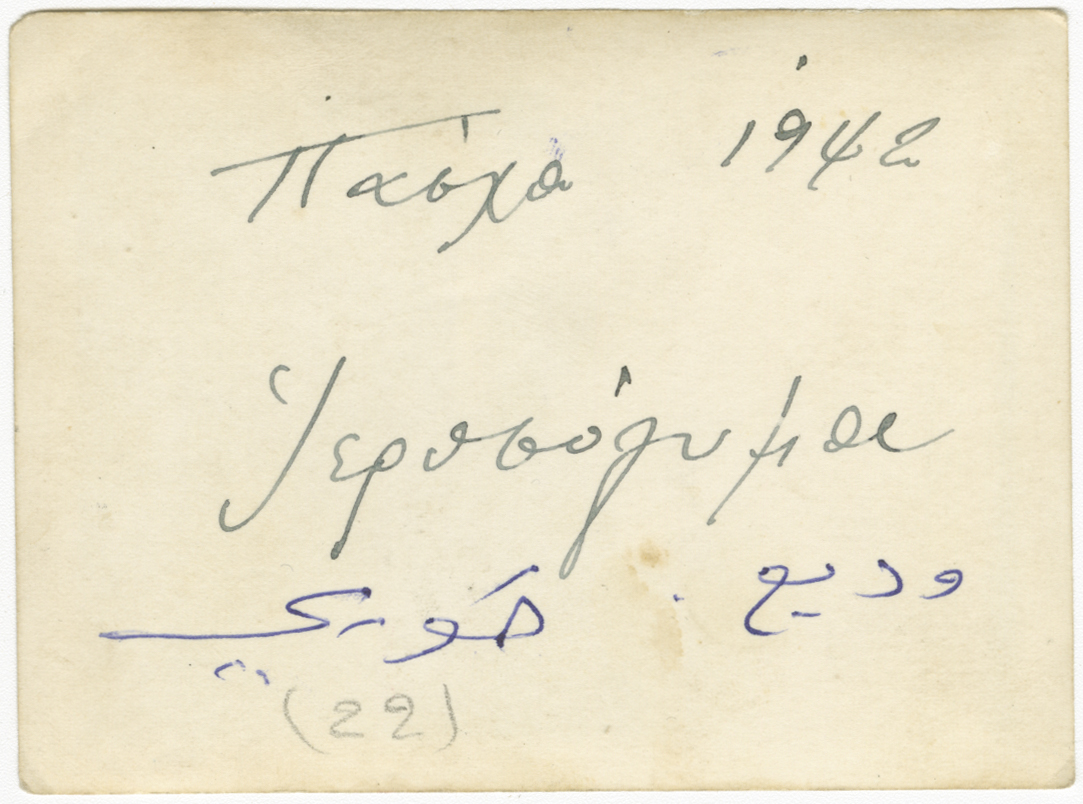 Πάσχα 1942
Ἱεροσόλυμα
وديع خوري
(22)